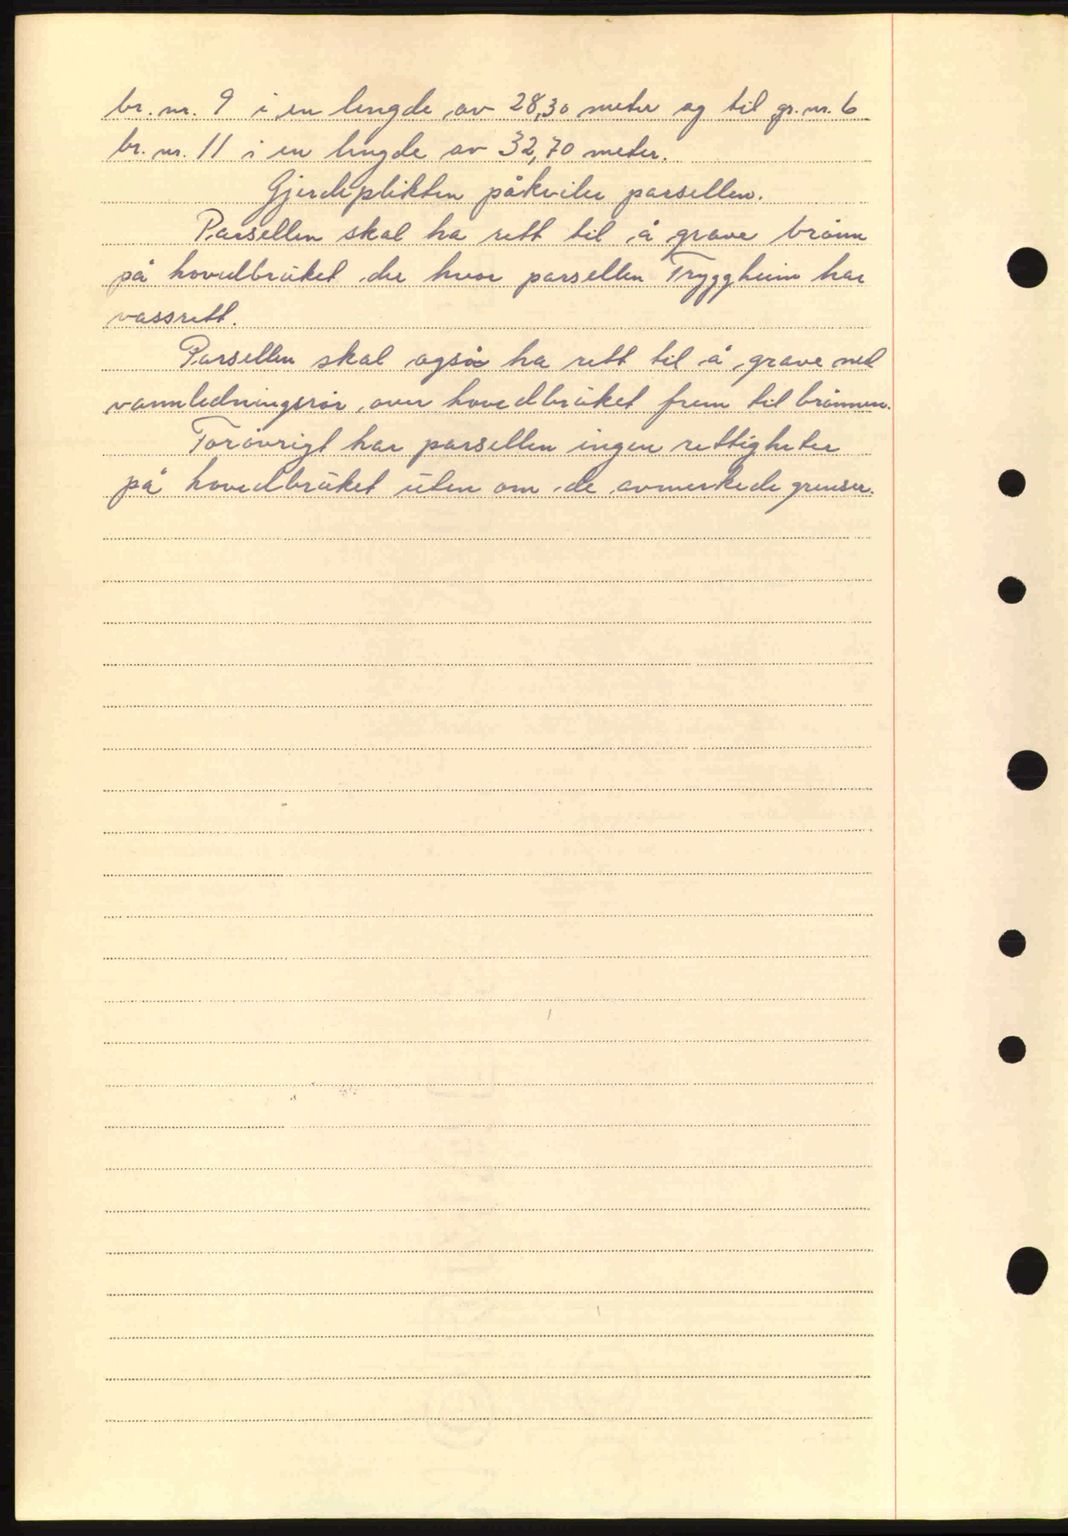 br. nr. 9 i en lengde av 28,30 meter og til gr. nr. 6
br. nr. 11 i en lengde av 32,70 meter.
Gjerdeplikten påkviler parsellen.
Parsellen skal ha rett til å grave brønn
på hovedbruket der hvor parsellen Tryggheim har
vassrett.
Parsellen skal også ha rett til å grave ned
vannledningsrør over hovedbruket frem til brønnen.
Forøvrigt har parsellen ingen rettigheter
på hovedbruket uten om de avmerkede grenser.